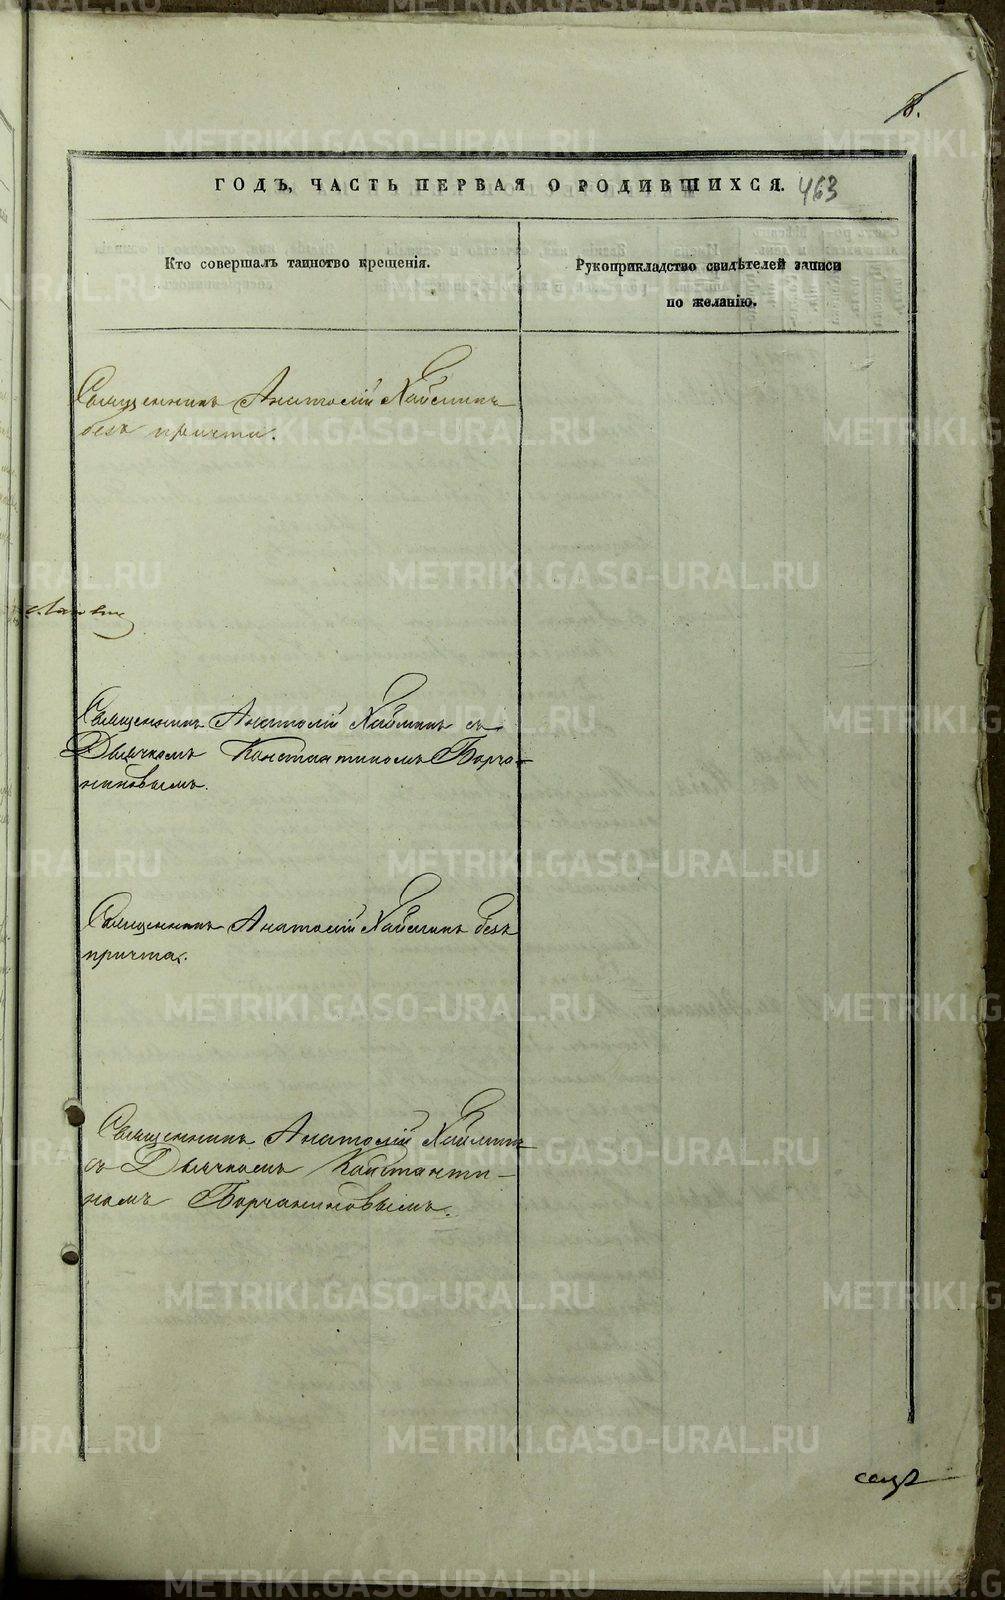 8.
ГОДЪ, ЧАСТЬ ПЕРВАЯ О РОДИВШИХСЯ. 463
Кто совершалъ таинство крещенія.
Рукоприкладство свидѣтелей записи
по желанію.
Священникъ Анатолій Хайминъ
безъ причта.
Священникъ Анатолій Хайминъ съ
Дьячкомъ Константиномъ Борча-
ниновымъ.
Священникъ Анатолій Хайминъ безъ
причта.
Священникъ Анатолій Хайминъ
съ Дьячкомъ Константи-
номъ Борчаниновымъ.
METRIKI.GASO-URAL.RU